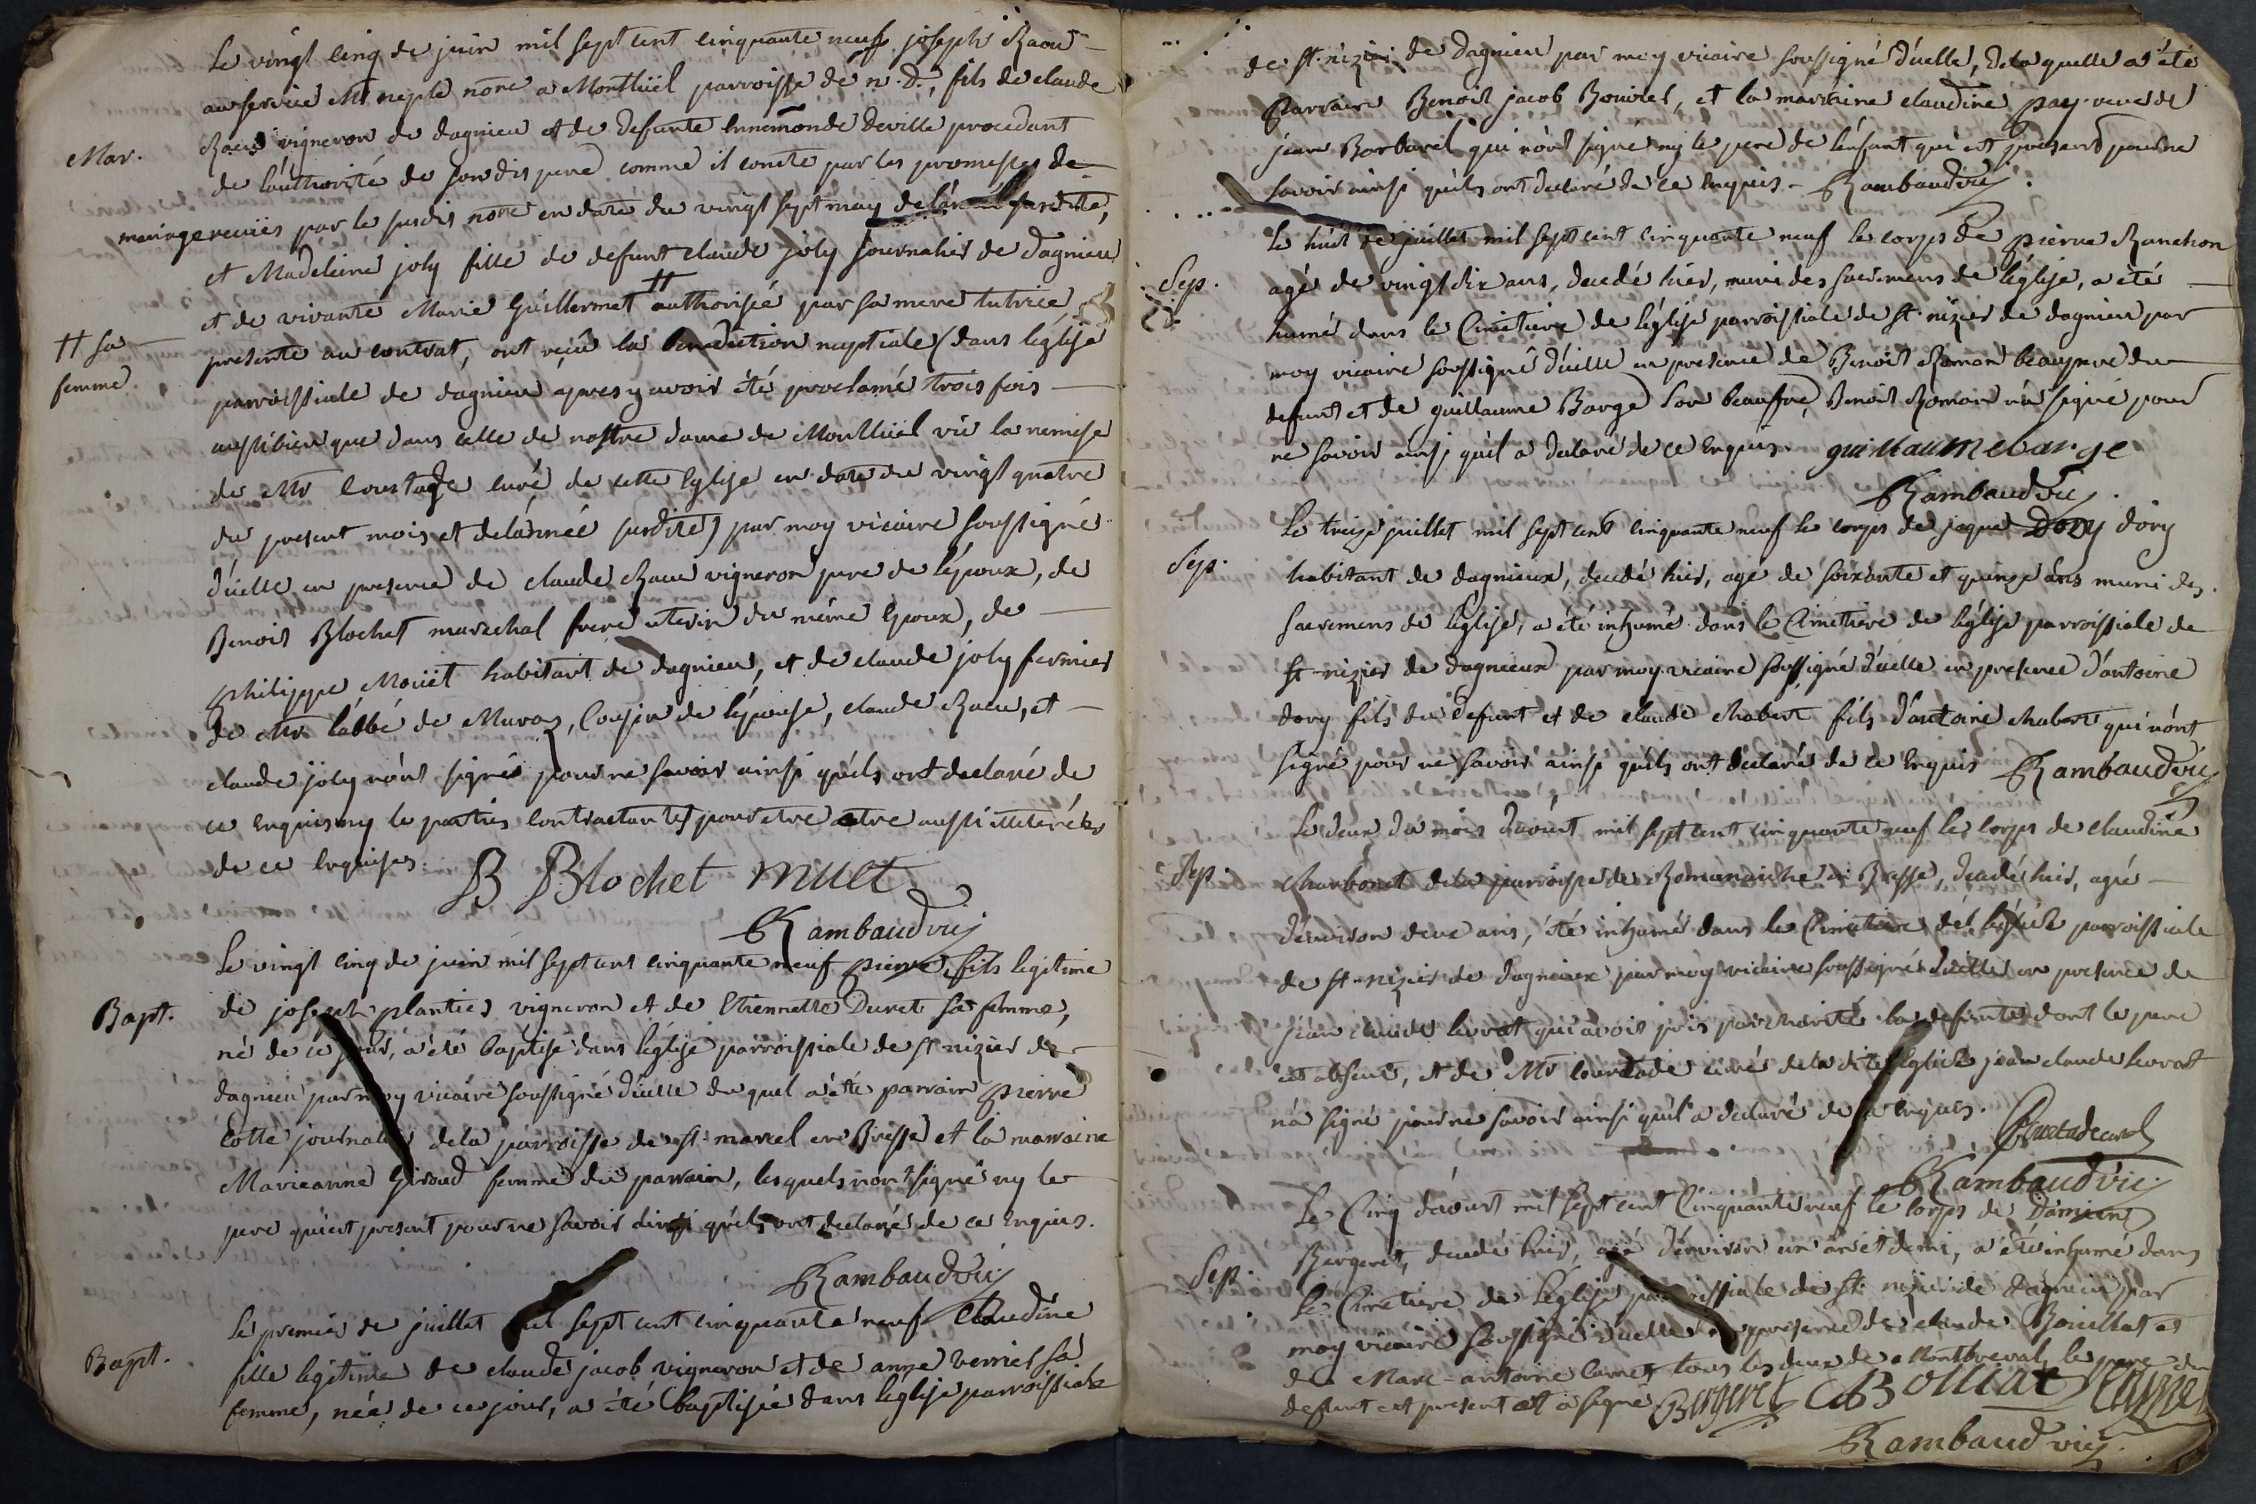 Le vingt cinq de juin mil sept cent cinquante neuf joseph Raou
au service Mr neple nore a Montluel parroisse de n. D., fils de claude
Mar.
Raou vigneron de dagnieu et de defunte Ennemonde Deville procedant
de l'authorité de son dit pere comme il conste par les promesses de
mariage recuies par le susdit nore en date du vingt sept may de lannée susdite,
et Madeleine joly fille de defunt claude joly journalier de dagnieu
et de vivante Marie Guillermet ++ authorisée par sa mere tutrice
++ sa
femme.
presente au contrat, ont reçu la benediction nuptiale (dans leglise
parroissiale de dagnieu apres y avoir été proclamé trois fois
aussi bien que dans celle de nostre dame de Montluel vû la remise
de Mr Courtade curé de cette Eglise en date du vingt quatre
du present mois et de lannée susdite) par moy vicaire soussigné
d'icelle en presence de claude Raou vigneron pere de l'époux, de
Benoit Blochet marechal frere uterin du même Epoux, de
philippe Moüet habitant de dagnieu, et de claude joly fermier
de Mr l'abbé de Muras, Cousin de l'épouse, claude Raou, et
claude joly n'ont signés pour ne savoir ainsi qu'ils ont declaré de
ce enquis ny le parties contractantes pour etre etre aussi illeterées
de ce Enquises.
B Blochet muet
Rambaud vic
Le vingt cinq de juin mil sept cent cinquante neuf pierre, fils legitime
Bapt.
de joseph plantier vigneron et de Etiennette Duret sa femme,
né de ce jour, a été baptisé dans l'église parroissiale de st nizier de
dagnieu par moy vicaire soussigné d'icelle du quel a été parrain pierre
Cotte journalier de la parroisse de st marcel en Bresse et la marraine
Marieanne Giroud femme du parrain, lesquels n'ont signé ny le
pere qui est present pour ne savoir ainsi qu'ils ont declarés de ce Enquis.
Rambaud vic
Le premier de juillet mil sept cent cinquante neuf Claudine
Bapt.
fille legitime de claude jacob vigneron et de anne verrier sa
femme, née de ce jour, a été baptisée dans l'église parroissiale
de st nizier de dagnieu par moy vicaire soussigné d'icelle, de la quelle a été
parrain Benoit jacob Bouvet, et la marraine claudine pay veuve de
jean Barbarel qui n'ont signé ny le pere de l'enfant qui est present pour ne
savoir ainsi qu'ils ont declaré de ce Enquis. Rambaud vic
Le huit de juillet mil sept cent cinquante neuf le corps de pierre Ranchon
Sep.
agé de vingt dix ans, decedé hier, muni des sacremens de l'église, a été
humé dans le Cimetiere de l'église parroissiale de st nizier de dagnieu par
moy vicaire soussigné d'icelle en presence de Benoit Roman beaupere du
defunt et de guillaume Barge son beaufre, Benoit Romain n'a signé pour
ne savoir ainsi qu'il a declaré de ce Enquis. guillaume barge
Rambaud vic
Le treize juillet mil sept cent cinquante neuf le corps de jaque Dory dory
Sep.
habitant de dagnieux, decedé hier, agé de soixante et quinze ans muni des
sacremens de l'église, a été inhumé dans le Cimetiere de l'église parroissiale de
st nizier de dagnieux par moy vicaire soussigné d'icelle en presence d'antoine
dory fils du defunt et de claude chabert fils d'antoine chabert qui n'ont
signé pour ne savoir ainsi qu'ils ont declarés de ce Enquis Rambaud vic
Le deux du mois d'aout mil sept cent cinquante neuf le corps de claudine
Sep.
charbonet de la parroisse de Romanaiche en Bresse, decedé hier, agée
d'environ deux ans, été inhumé dans le Cimetiere de l'église parroissiale
de st nizier de dagnieux par moy vicaire soussigné d'icelle en presence de
jean claude levrat qui avoit pris par charité la defunte dont le pere
est absent, et de Mr Courtade curé de la dite Eglise jean claude levrat
n'a signé pour ne savoir ainsi qu'il a declaré de ce Enquis.
Courtade curé
Rambaud vic
Le Cinq d'aout mil sept cent Cinquante neuf le corps de Damient
Sep.
Bergeret, decedé hier, agé d'environ un an et demi, a été inhumé dans
le Cimetiere de l'église parroissiale de st nizier de dagnieu par
moy vicaire soussigné d'icelle en presence de claude Bouillat et
de Marc-antoine Carret tous les deux de Montreval, le pere du
defunt est present et a signé Bergeret C Bolliat
Rambaud vic